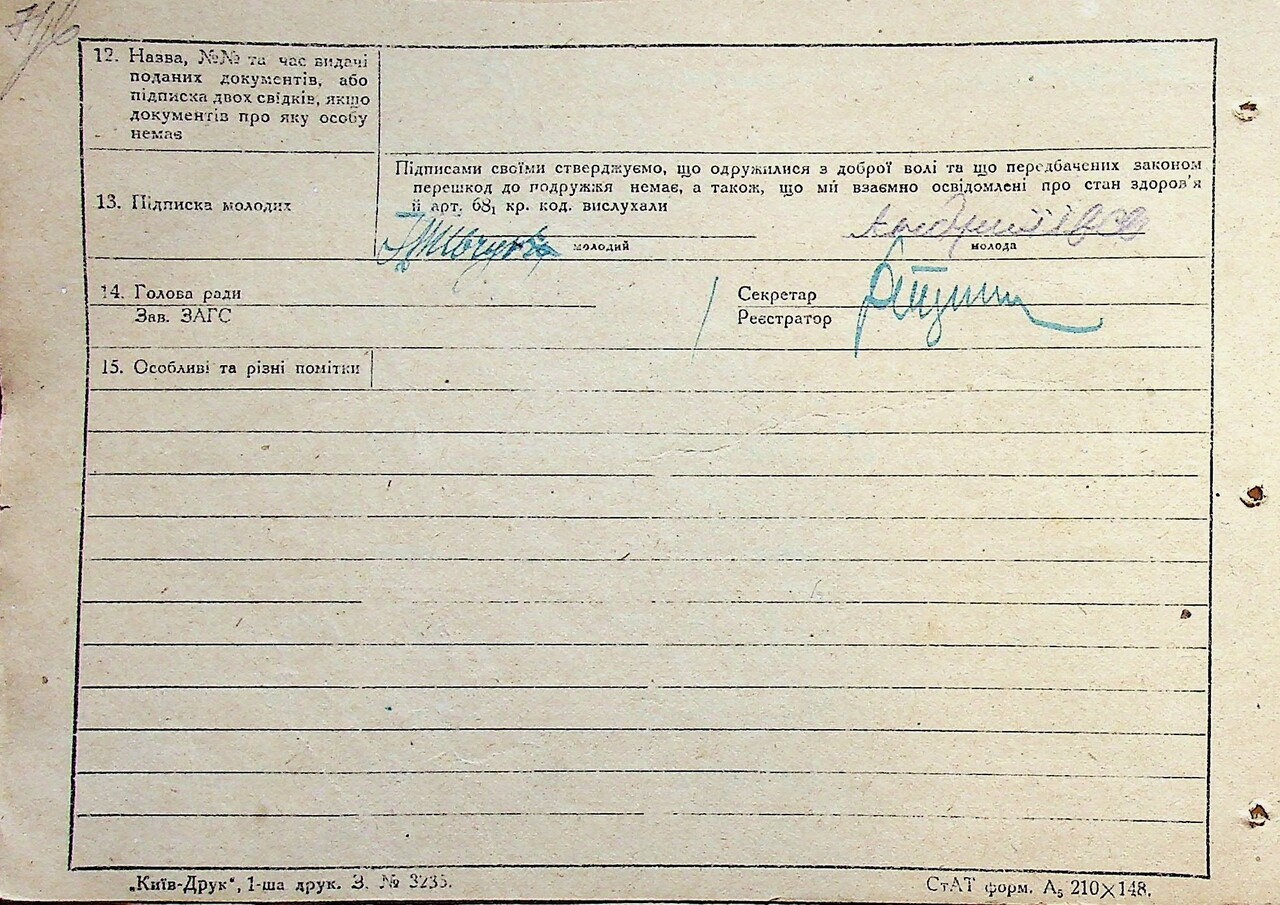 12. Назва, №№ та час видачі
поданих документів, або
підписка двох свідків, якщо
документів про яку особу
немає
Підписами своїми стверджуємо, що одружилися з доброї волі та що передбачених законом
перешкод до подружжя немає, а також, що ми взаємно освідомлені про стан здоров'я
й арт. 68₁ кр. код. вислухали
13. Підписка молодих
молодий
молода
14. Голова ради
Зав. ЗАГС
Секретар
Реєстратор
15. Особливі та різні помітки
„Київ-Друк", 1-ша друк. З. № 3235.
СтАТ форм. А₅ 210×148.